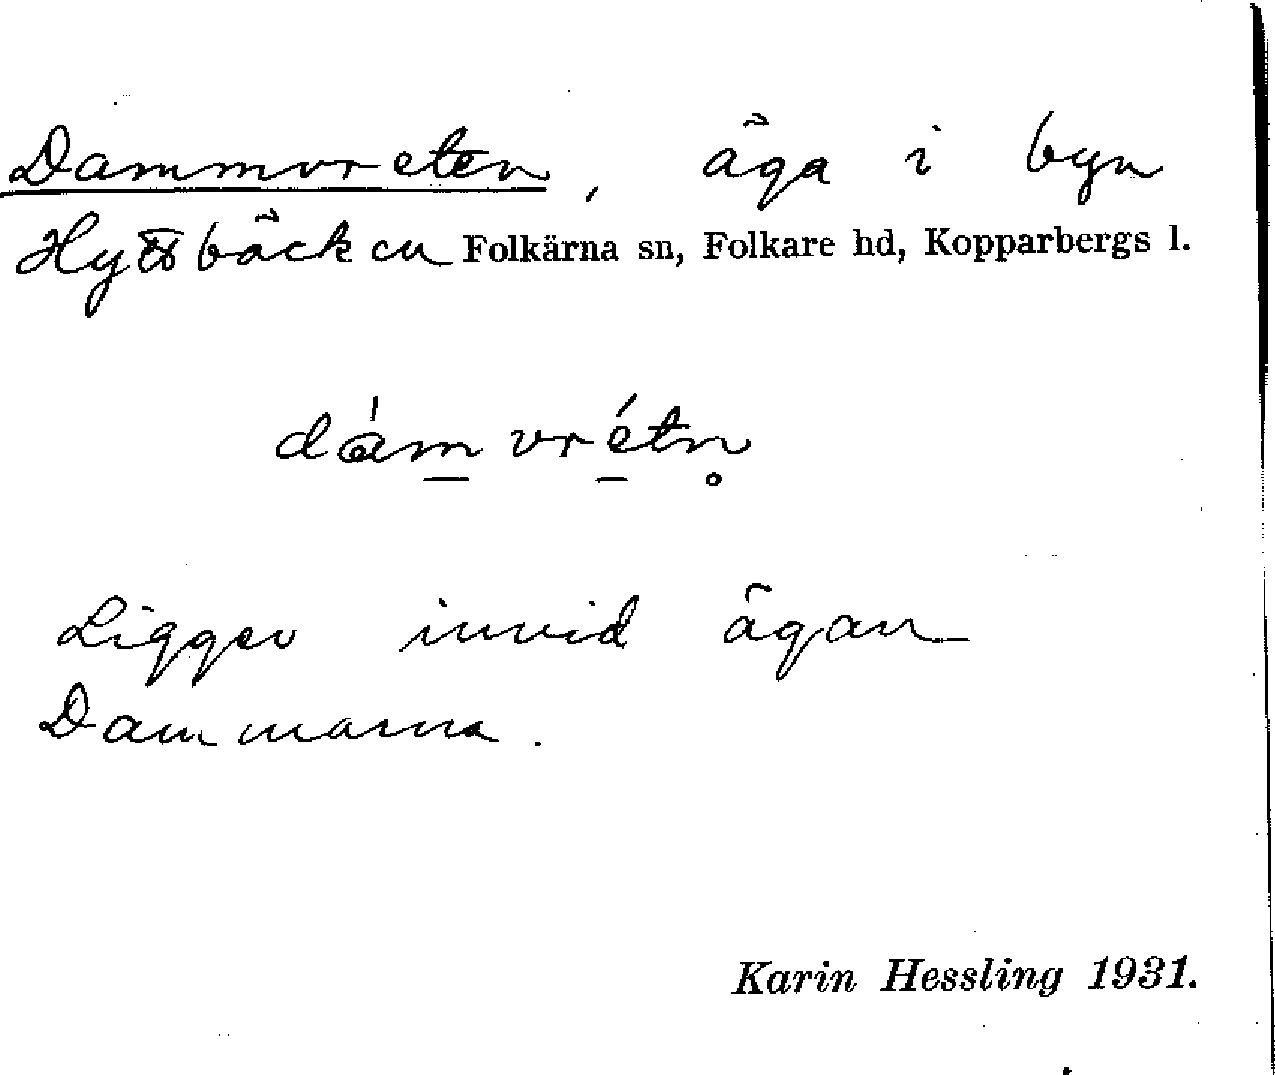 Dammvreten, äga i byn
Hyttbäcken Folkärna sn, Folkare hd, Kopparbergs l.
dámvrétn̥
Ligger invid ägan
Dammarna.
Karin Hessling 1931.